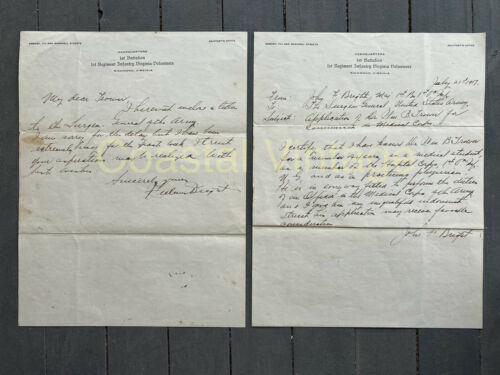 ARMORY, 7TH AND MARSHALL STREETS
ADJUTANT'S OFFICE
HEADQUARTERS
1st Battalion
1st Regiment Infantry Virginia Volunteers
RICHMOND, VIRGINIA
My dear
I herewith enclose a letter
to the Surgeon General of the Army
I am sorry for the delay but I have been
extremely busy for the past week. I trust
your aspirations may be realized. With
best wishes
Sincerely yours
Bright
ADJUTANT'S OFFICE
HEADQUARTERS
1st Battalion
1st Regiment Infantry Virginia Volunteers
RICHMOND, VIRGINIA
July 1917.
From: John F. Bright, Maj 1st Bn 1st Va Inf
To: The Surgeon General, United States Army
Subject: Application of Dr. Wm B. for
Commission in Medical Corps
I certify that I have known Dr. Wm B.
for a number of years as a medical student,
as a member of the Hospital Corps, 1st Va Inf
and as a practicing physician
He is in every way fitted to perform the duties
of an Officer in the Medical Corps of the Army
and I give him my unqualified indorsement
I trust his application may receive favorable
consideration
John Bright
Coastal